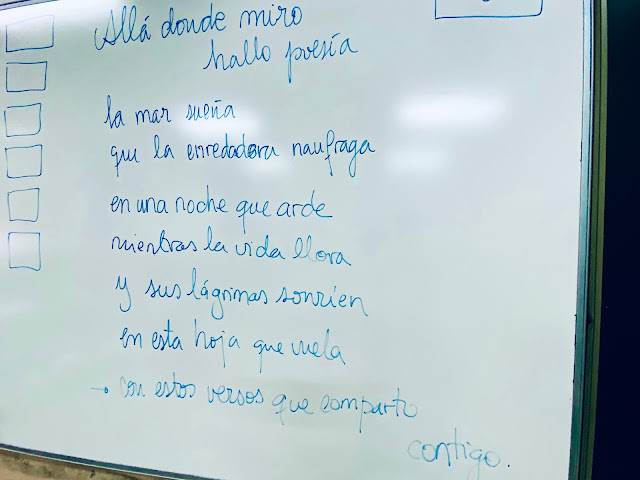 Allá donde miro
hallo poesía
la mar sueña
que la enredadera naufraga
en una noche que arde
mientras la vida llora
y sus lágrimas sonríen
en esta hoja que vuela
→ con estos versos que comparto
contigo.